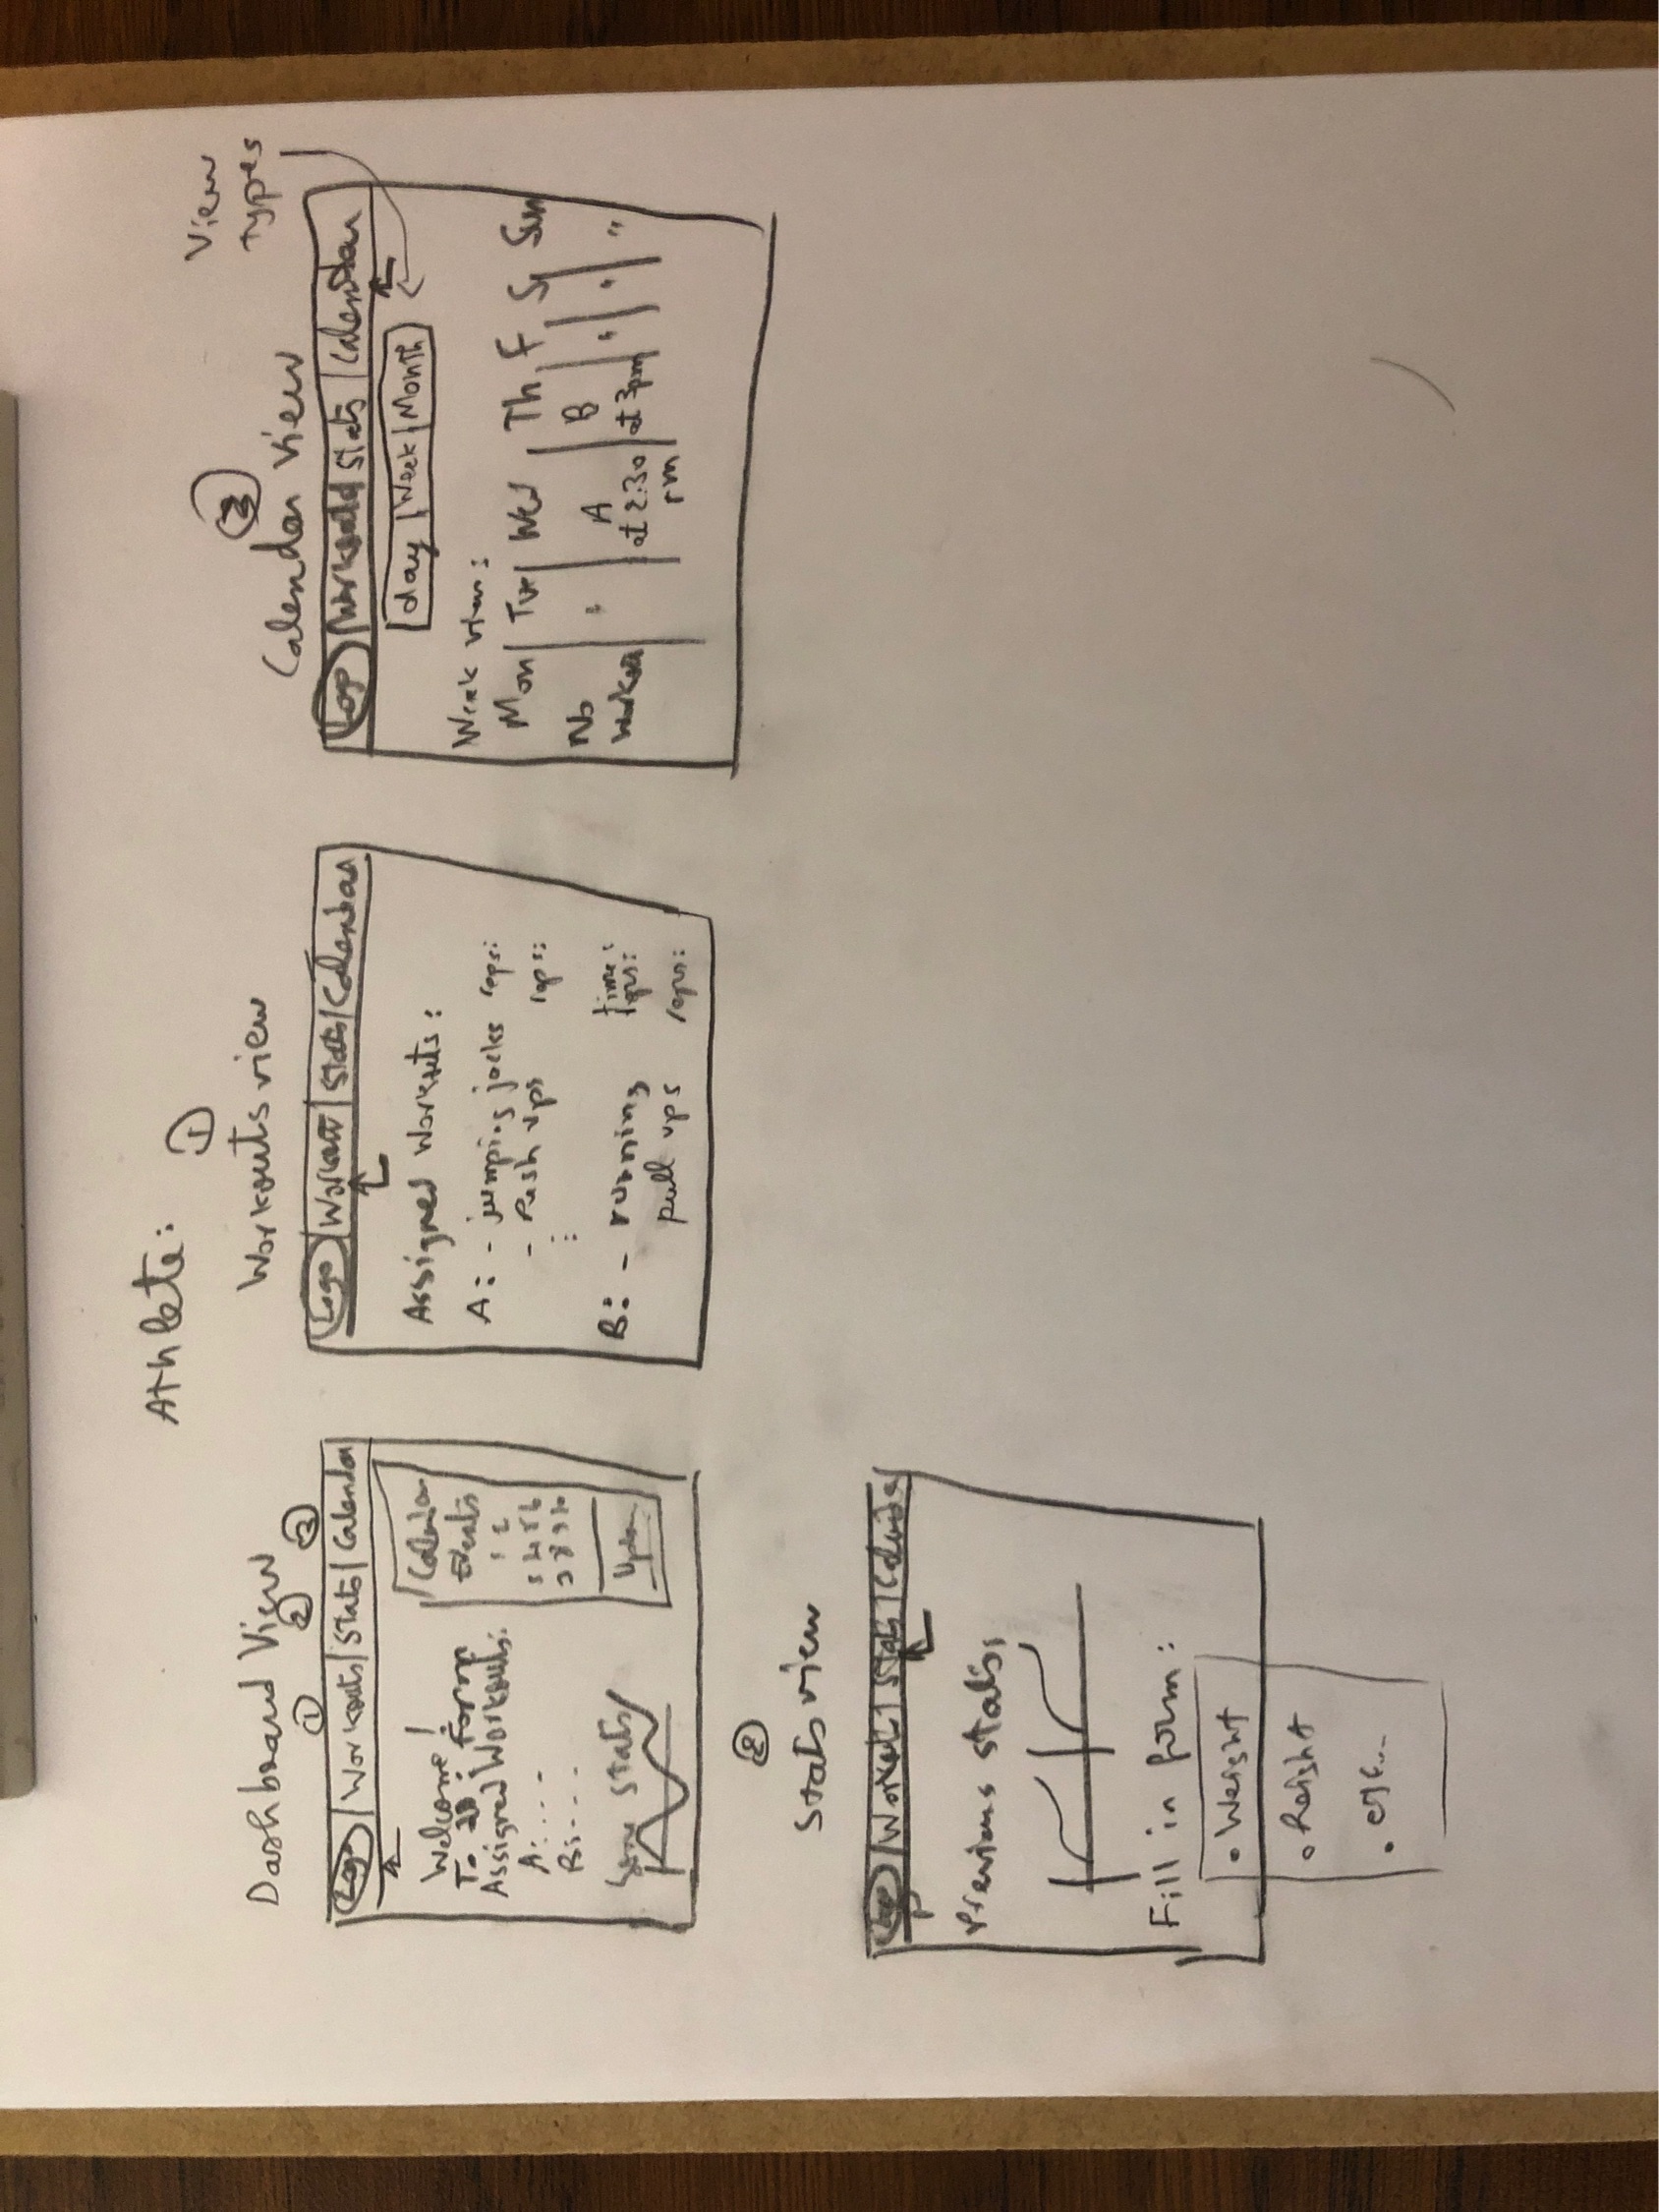 Athlete:
Dashboard View
① ② ③
Logo | Workouts | Stats | Calendar
Welcome!
To : form
Assigned Workouts:
A: . . . -
B: - - -
Some stats
Calendar
Events
1 2
3 4 5 6
7 8 9 10
①
Workouts view
Logo | Workout | Stats | Calendar
Assigned Workouts:
A: - jumping jacks reps:
- Push ups reps:
:
B: - running time:
reps:
pull ups reps:
③
Calendar View
View
types
Logo | Workouts | Stats | Calendar
day | Week | Month
Week view:
Mon | Tue | Wed | Th | F | S | Sun
No
Workout
"
A
at 2:30
pm
B
at 3pm
"
"
"
②
Stats view
Logo | Workouts | Stats | Calendar
Previous stats:
Fill in form:
• Weight
• height
• etc...